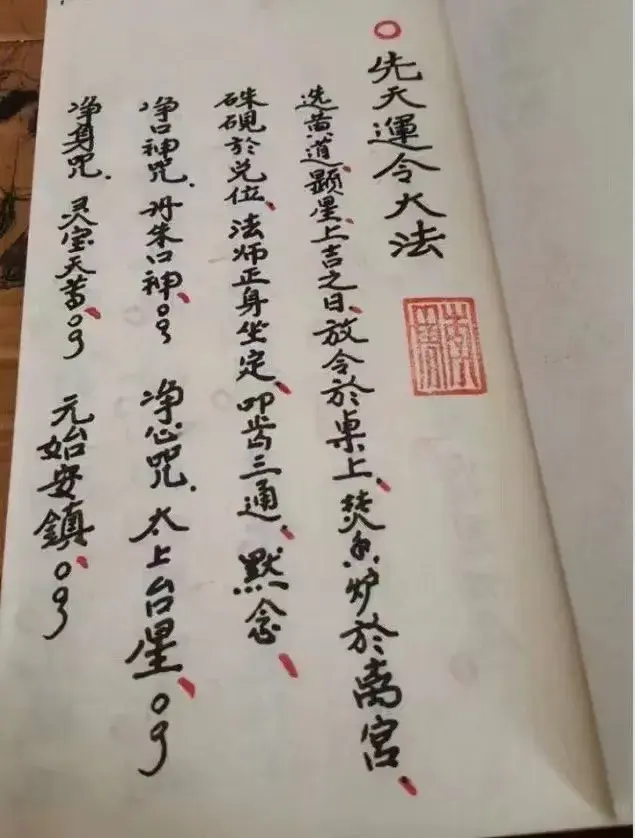 先天運令大法
选黄道、顕星、上吉之日、放令於桌上、焚香炉於离宫、
硃硯於兑位、法师正身坐定、叩齿三通、默念、
净口神咒.丹朱口神、。净心咒.太上台星、。
净身咒.灵宝天尊、。元始安鎮、。